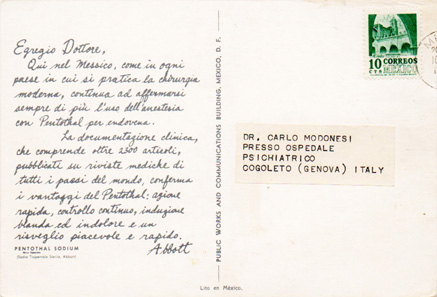 Egregio Dottore,
Qui nel Messico, come in ogni
paese in cui si pratica la chirurgia
moderna, continua ad affermarsi
sempre di più l'uso dell'anestesia
con Pentothal per endovena.
La documentazione clinica,
che comprende oltre 2500 articoli,
pubblicati su riviste mediche di
tutti i paesi del mondo, conferma
i vantaggi del Pentothal: azione
rapida, controllo continuo, induzione
blanda ed indolore e un
risveglio piacevole e rapido.
Abbott
PENTOTHAL SODIUM
PUBLIC WORKS AND COMMUNICATIONS BUILDING, MEXICO, D. F.
10
CTS
CORREOS
MEXICO
DR. CARLO MODONESI
PRESSO OSPEDALE
PSICHIATRICO
COGOLETO (GENOVA) ITALY
Lito en México.